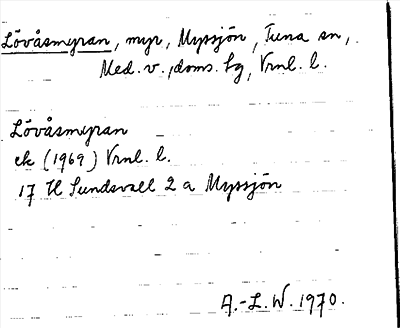 Lövåsmyran, myr, Myssjön, Tuna sn,
Med. v., doms. sg, Vrnl. l.
Lövåsmyran
ek (1969) Vrnl. l.
17 H Sundsvall 2 a Myssjön
A.-L. W. 1970.